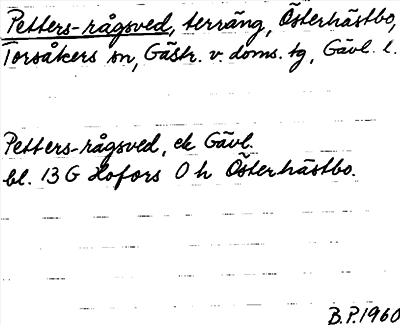 Petters-rågsved, terräng, Österhästbo,
Torsåkers sn, Gästr. v. doms. tg, Gävl. l.
Petters-rågsved, ek Gävl.
bl. 13 G Hofors 0 h Österhästbo.
B.P. 1960